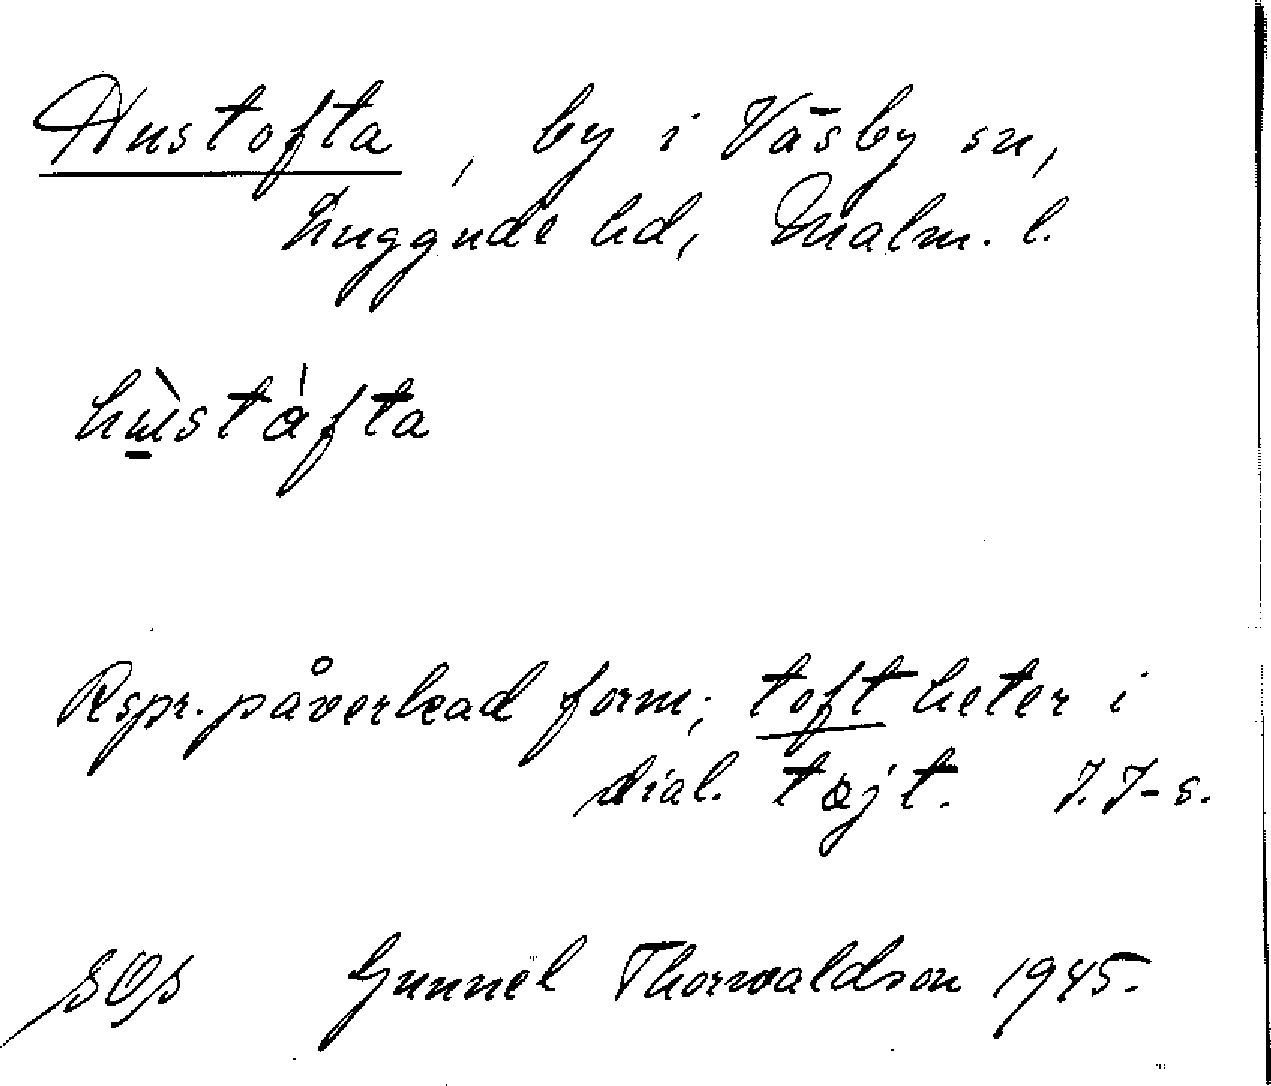 Hustofta, by i Väsby sn,
Luggude hd, Malm. l.
hùstáfta
Rspr. påverkad form; toft heter i
dial. tøjt. J.J-s.
Gunnel Thorwaldson 1945.